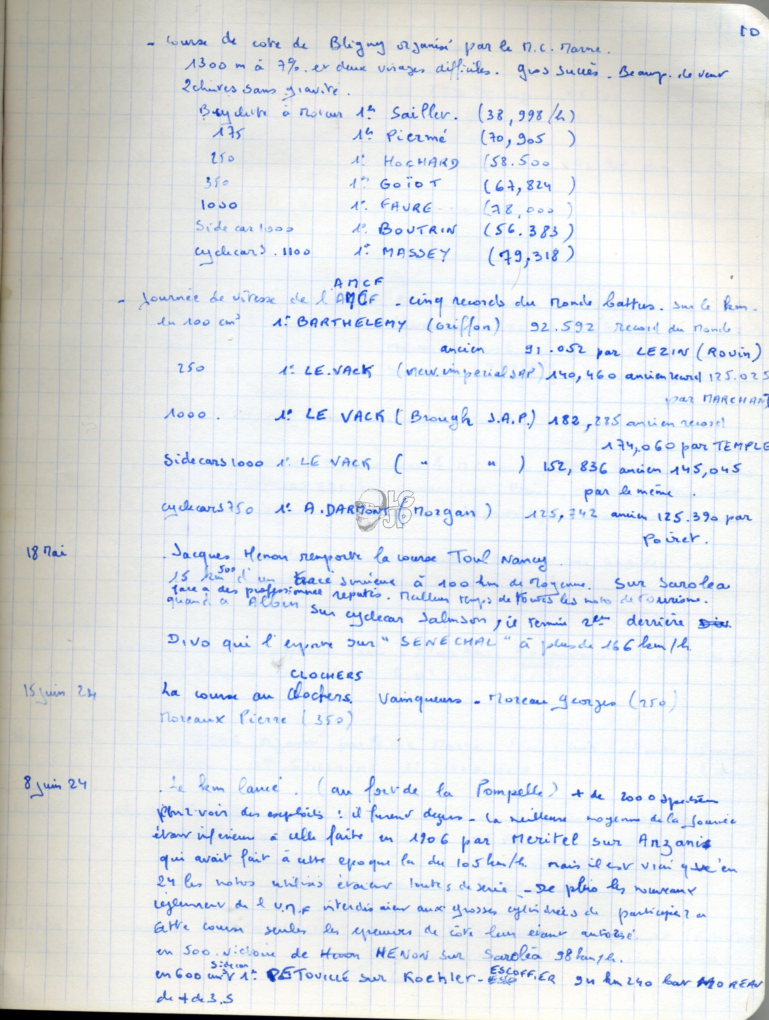 10
- Course de cote de Bligny organisé par le M.C. Marne.
1300 m à 7%. et deux virages difficiles. gros succès. Beaup. de vent
2 chutes sans gravité.
Bicyclette à moteur 1er Sailler. (38,998/h)
175 1er Piermé (70,905)
250 1er HOCHARD (58.500
350 1er GOÏOT (67,824)
1000 1er FAURE (78,000)
Side cars 1000 1er BOUTRIN (56.383)
cyclecars. 1100 1er MASSEY (79,318)
AMCF
- Journée de vitesse de l'AMCF - cinq records du monde battus. sur le km.
en 100 cm3 1er BARTHELEMY (Griffon) 92.592 record du monde
ancien 91.052 par LEZIN (ROVIN)
250 1er LE.VACK (new.imperial JAP) 140,460 ancien record 125.025
par MARCHANT
1000. 1er LE VACK (Brough J.A.P.) 182,285 ancien record
174,060 par TEMPLE
Sidecars 1000 1er LE VACK ( " " ) 152,836 ancien 145,045
par le même.
cyclecars 750 1er A. DARMONT (Morgan) 125,742 ancien 125.390 par
Poiret.
18 Mai . Jacques Henon remporte la course Toul Nancy
15 km 500 d'un tracé sinueux à 100 km de moyenne. Sur Sarolea
face à des professionnels reputés. Meilleur temps de toutes les motos de tourisme.
quand à Albin sur cyclecar Salmson, il termine 2em derrière
DIVO qui l'emporte sur "SENECHAL" à plus de 166 km/h
CLOCHERS
15 juin 24 La course au clochers. Vainqueurs - Moreau Georges (250)
Moreaux Pierre (350)
8 juin 24 . Le km lancé. (au fort de la Pompelle) + de 2000 spectateurs
pour voir des exploits : il furent deçus - la meilleure moyenne de la journée
étant inferieur à celle faite en 1906 par Meritel sur Anzani
qui avait fait à cette epoque la du 105 km/h. mais il est vrai que en
24 les motos utilisés étaient toutes de serie - De plus les nouveaux
reglement de l U.M.F interdisaient aux grosses cylindrées de participer a
cette course seules les epreuves de côte leur etant autorisé
en 500. victoire de Henon HENON sur Sarolea 98 km/h.
en 600 cm3 sidecar 1er PETOUILLE sur Koehler-ESCOFFIER 94 km 240 bat MOREAU
de + de 3.S